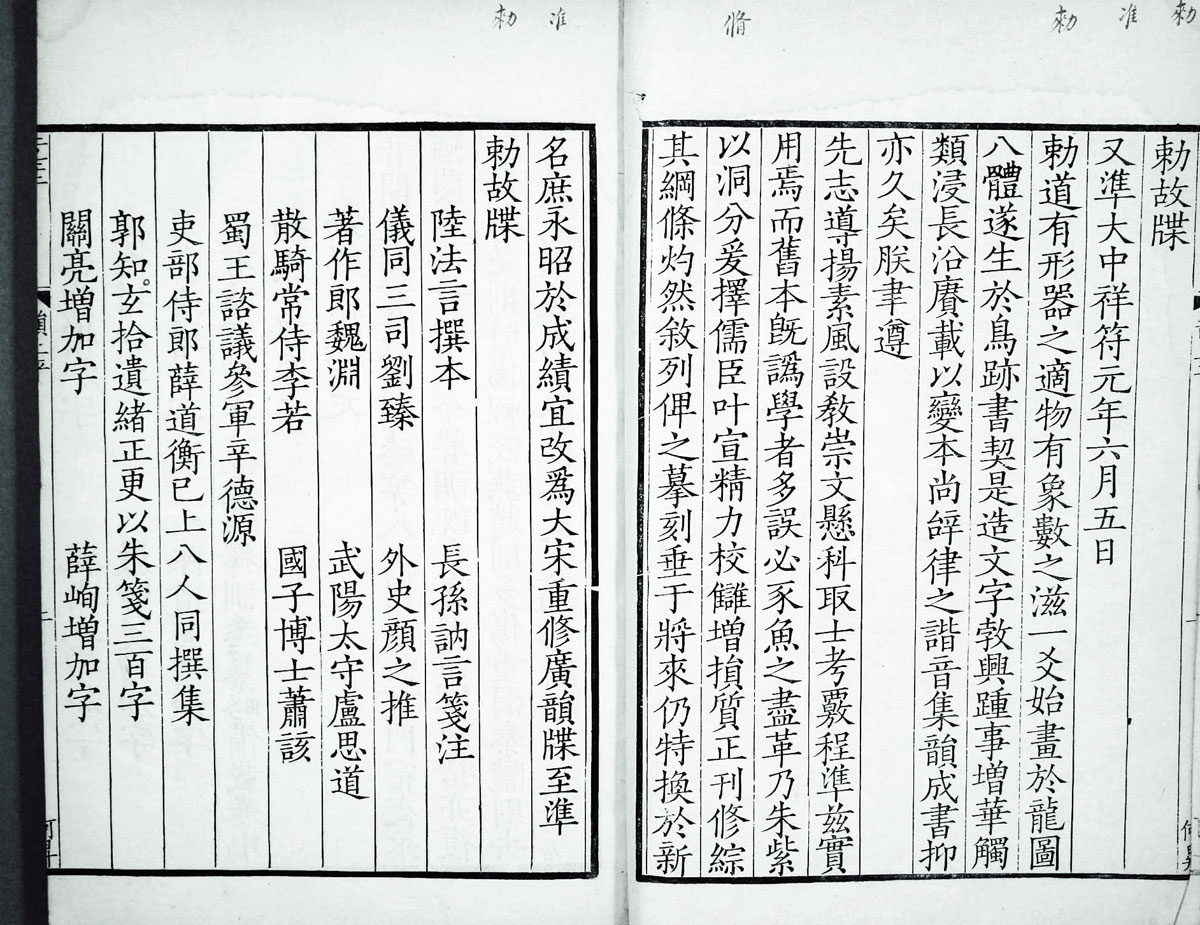 勅 准 勅
脩
准 勅
勅故牒
又準大中祥符元年六月五日
勅道有形器之適物有象數之滋一爻始畫於龍圖
八體遂生於鳥跡書契是造文字敦興踵事增華觸
類浸長沿賡載以變本尚辝律之諧音集韻成書抑
亦久矣朕聿遵
先志導揚素風設敎崇文懸科取士考覈程準茲實
用焉而舊本旣譌學者多誤必豕魚之盡革乃朱紫
以洞分爰擇儒臣叶宣精力校讎增損質正刊修綜
其綱條灼然敘列俾之摹刻垂于將來仍特換於新
名庶永昭於成績宜改爲大宋重修廣韻牒至準
勅故牒
陸法言撰本 長孫訥言箋注
儀同三司劉臻 外史顏之推
著作郎魏淵 武陽太守盧思道
散騎常侍李若 國子博士蕭該
蜀王諮議參軍辛德源
吏部侍郎薛道衡已上八人同撰集
郭知玄拾遺緒正更以朱箋三百字
關亮增加字 薛峋增加字